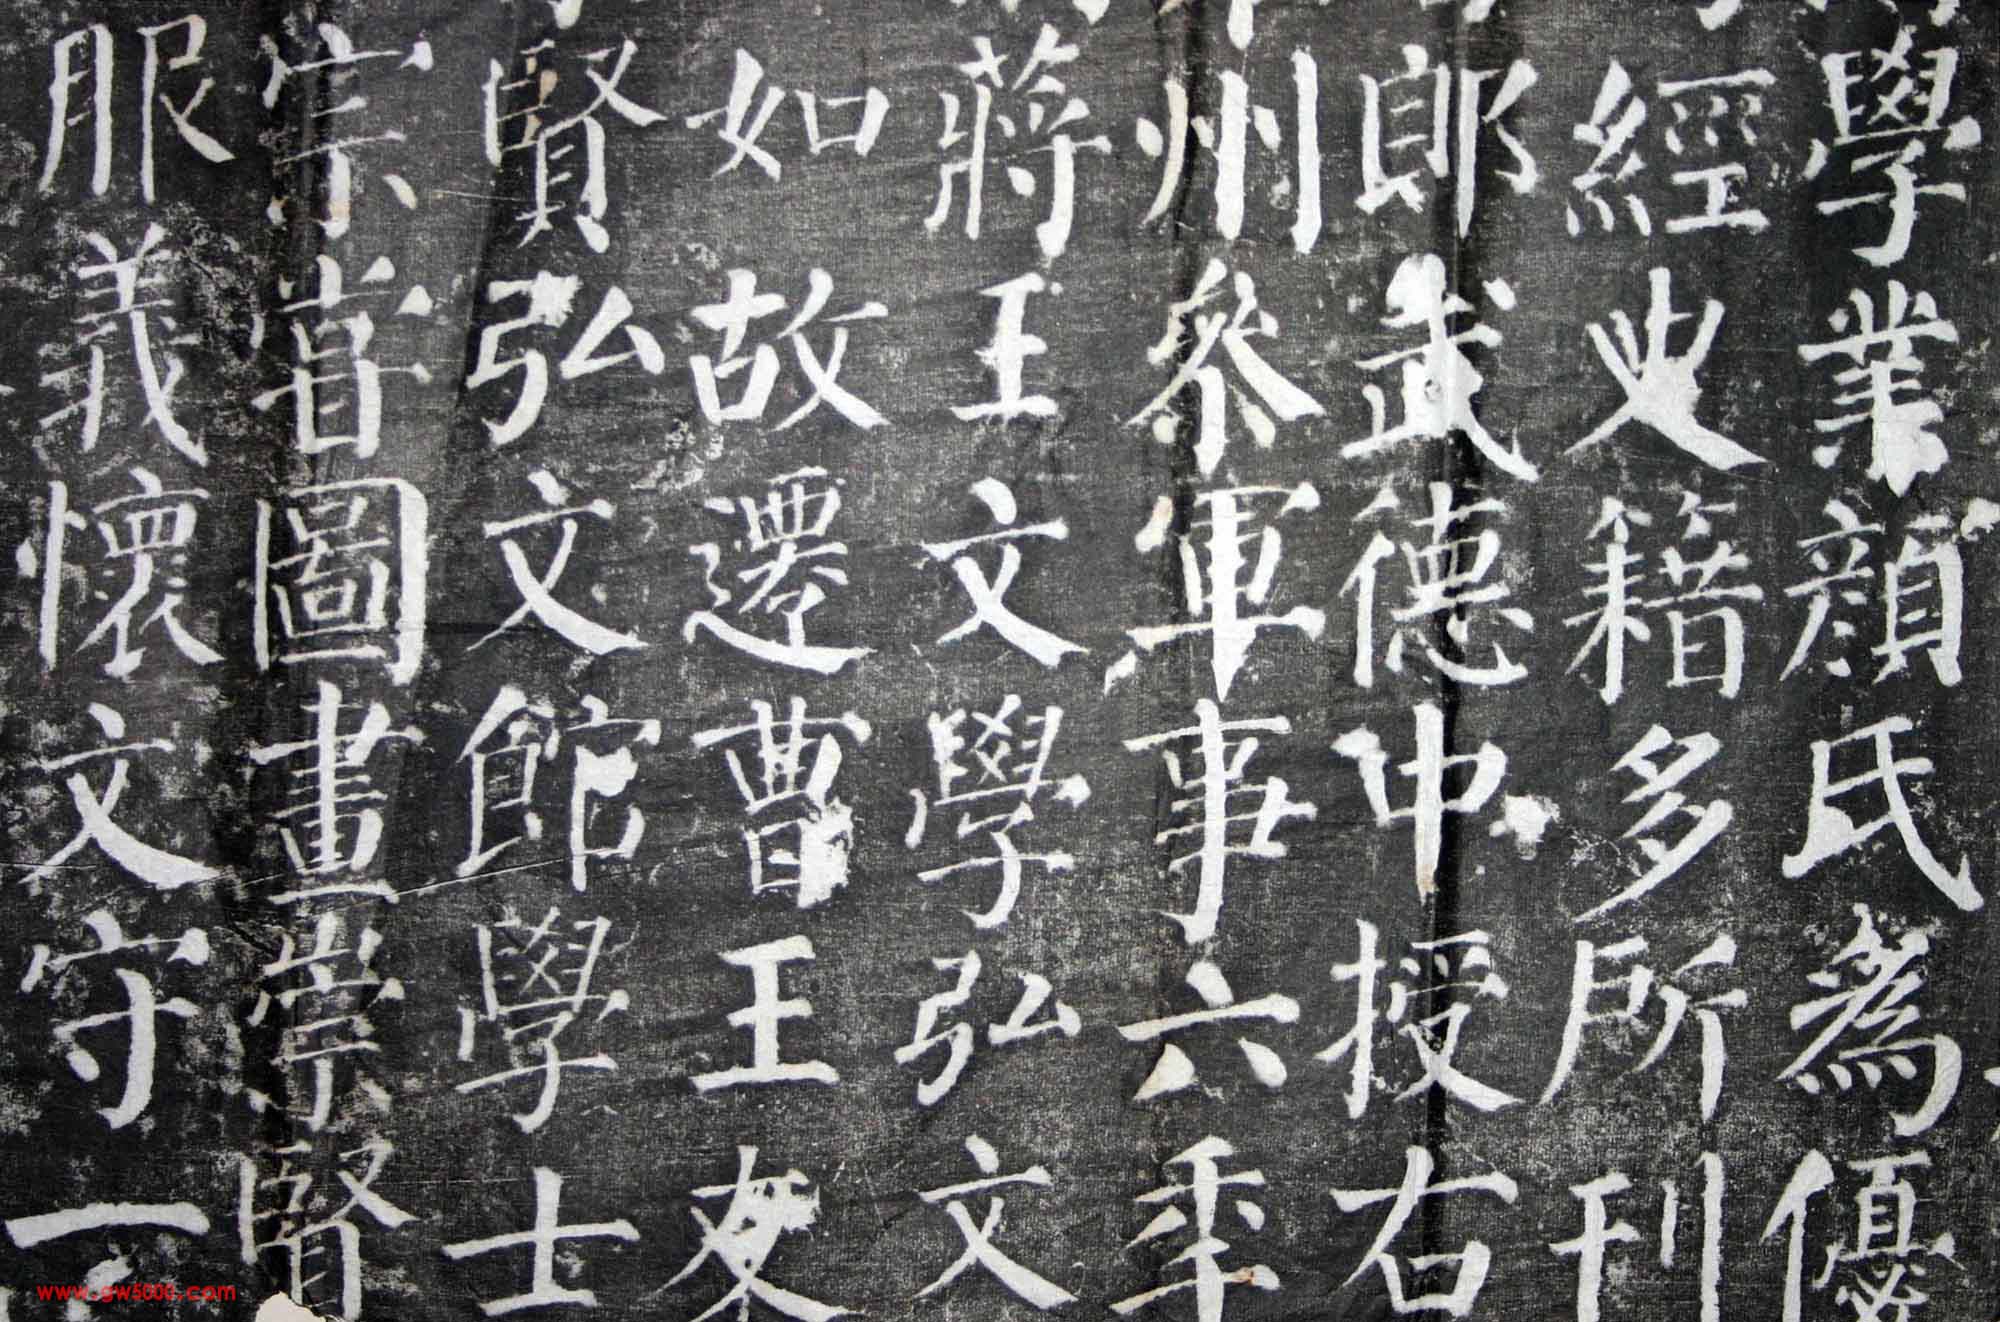 學業顏氏為優
經史籍多所刊
郎武德中授右
州參軍事六年
蔣王文學弘文
如故遷曹王友
賢弘文館學士
宗嘗圖畫崇賢
服義懷文守一
www.gw5000.com